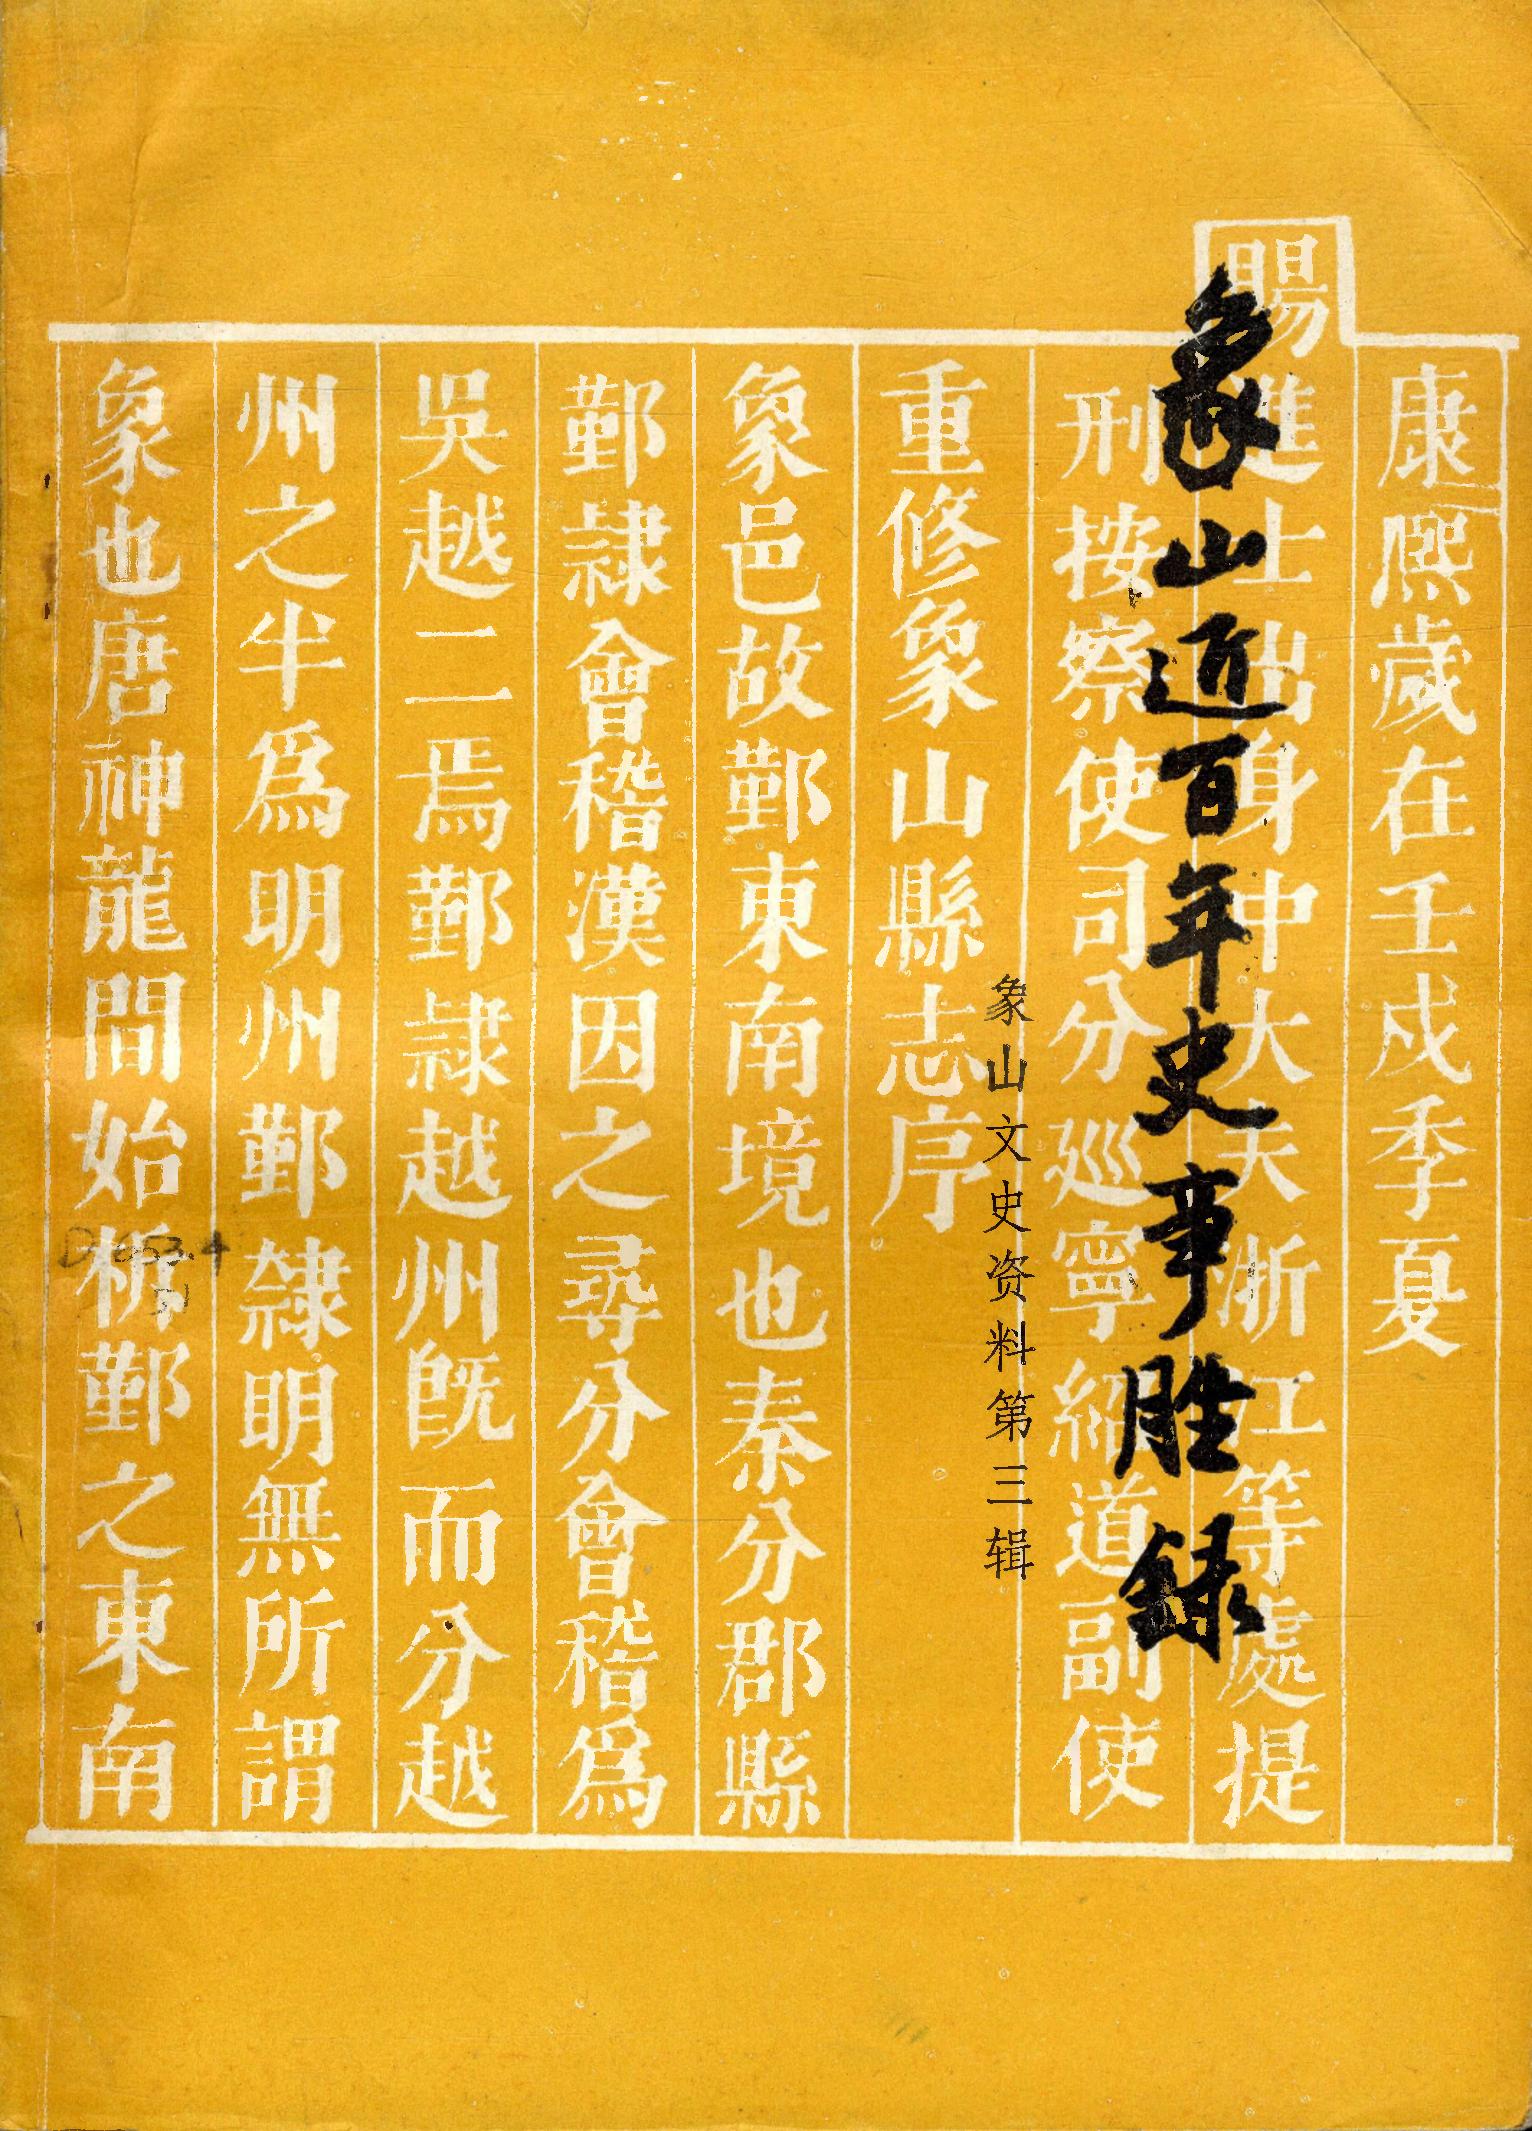 象山近百年史事胜录
象山文史资料第三辑
康熙歲在壬戌季夏
賜進士出身中大夫浙江等處提
刑按察使司分廵寧紹道副使
重修象山縣志序
象邑故鄞東南境也秦分郡縣
鄞隷會稽漢因之尋分會稽爲
吳越二焉鄞隷越州旣而分越
州之半爲明州鄞隸明無所謂
象也唐神龍間始析鄞之東南